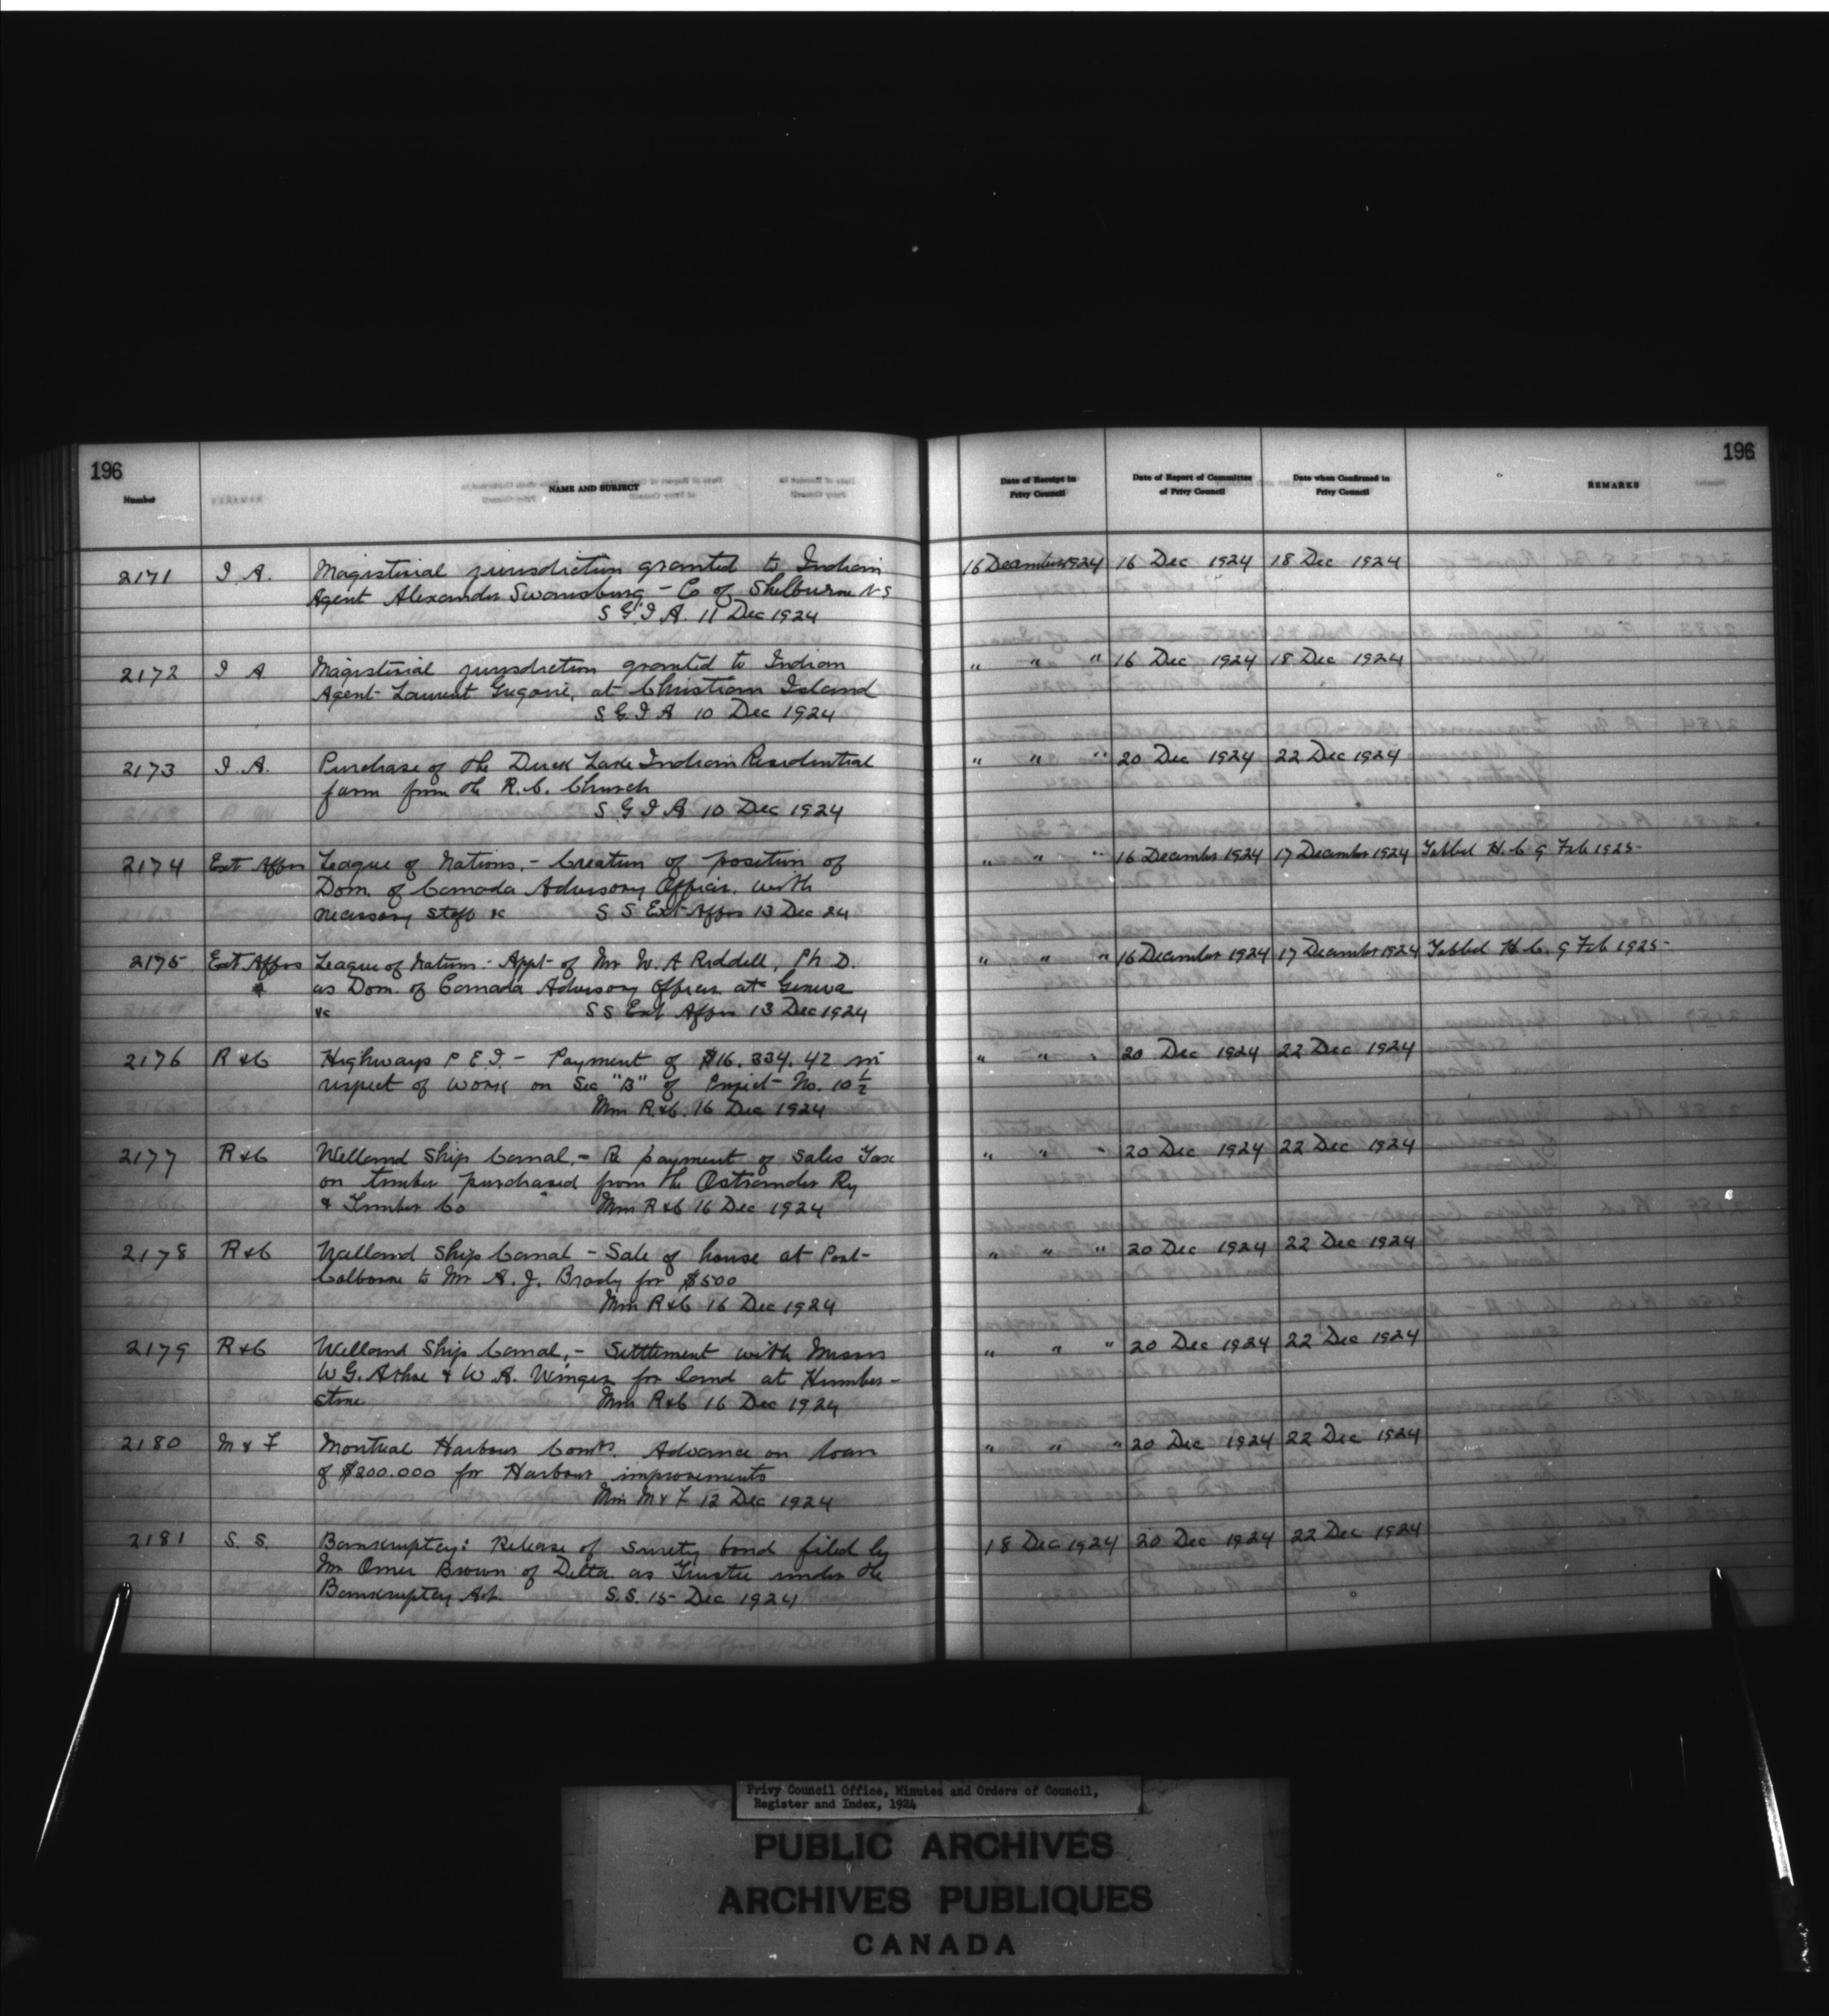 196
196
Number
NAME AND SUBJECT
Date of Receipt in Privy Council
Date of Report of Committee of Privy Council
Date when Confirmed in Privy Council
REMARKS
2171 I. A. Magisterial jurisdiction granted to Indian 16 December 1924 16 Dec 1924 18 Dec 1924
Agent Alexander Swansburg - Co of Shelburne N S
S G I A. 11 Dec 1924
2172 I A Magisterial jurisdiction granted to Indian " " " 16 Dec 1924 18 Dec 1924
Agent Laurent at Christian Island
S G I A 10 Dec 1924
2173 I. A. Purchase of the Duck Lake Indian Residential " " " 20 Dec 1924 22 Dec 1924
farm from the R. C. Church
S G I A 10 Dec 1924
2174 Ext Affrs League of Nations, - Creation of position of " " " 16 December 1924 17 December 1924 Tabled H. C. 9 Feb 1925-
Dom. of Canada Advisory Officer with
necessary staff &c S S Ext Affrs 13 Dec 24
2175 Ext Affrs League of Nations - Appt of Mr W. A Riddell, Ph D. " " " 16 December 1924 17 December 1924 Tabled H. C. 9 Feb 1925-
as Dom. of Canada Advisory Officer at Geneva
&c S S Ext Affrs 13 Dec 1924
2176 R & C Highways P E. I. - Payment of $16.334.42 in " " " 20 Dec 1924 22 Dec 1924
respect of work on Sec "B" of Project No. 10 1/2
Min R & C. 16 Dec 1924
2177 R & C Welland Ship Canal, - Re payment of Sales Tax " " " 20 Dec 1924 22 Dec 1924
on timber purchased from the Ostrander Ry
& Timber Co Min R & C 16 Dec 1924
2178 R & C Welland Ship Canal - Sale of house at Port " " " 20 Dec 1924 22 Dec 1924
Colborne to Mr A. J. Brady for $500
Min R & C 16 Dec 1924
2179 R & C Welland Ship Canal, - Settlement with Messrs " " " 20 Dec 1924 22 Dec 1924
W G. & W A. Winger for land at Humber-
stone Min R & C 16 Dec 1924
2180 M & F Montreal Harbour Comrs. Advance on loan " " " 20 Dec 1924 22 Dec 1924
of $200.000 for Harbour improvements
Min M & F 12 Dec 1924
2181 S. S. Bankruptcy: Release of surety bond filed by 18 Dec 1924 20 Dec 1924 22 Dec 1924
Mr Omer Brown of Delta as Trustee under the
Bankruptcy Act. S. S. 15 Dec 1924
Privy Council Office, Minutes and Orders of Council,
Register and Index, 1924
PUBLIC ARCHIVES
ARCHIVES PUBLIQUES
CANADA